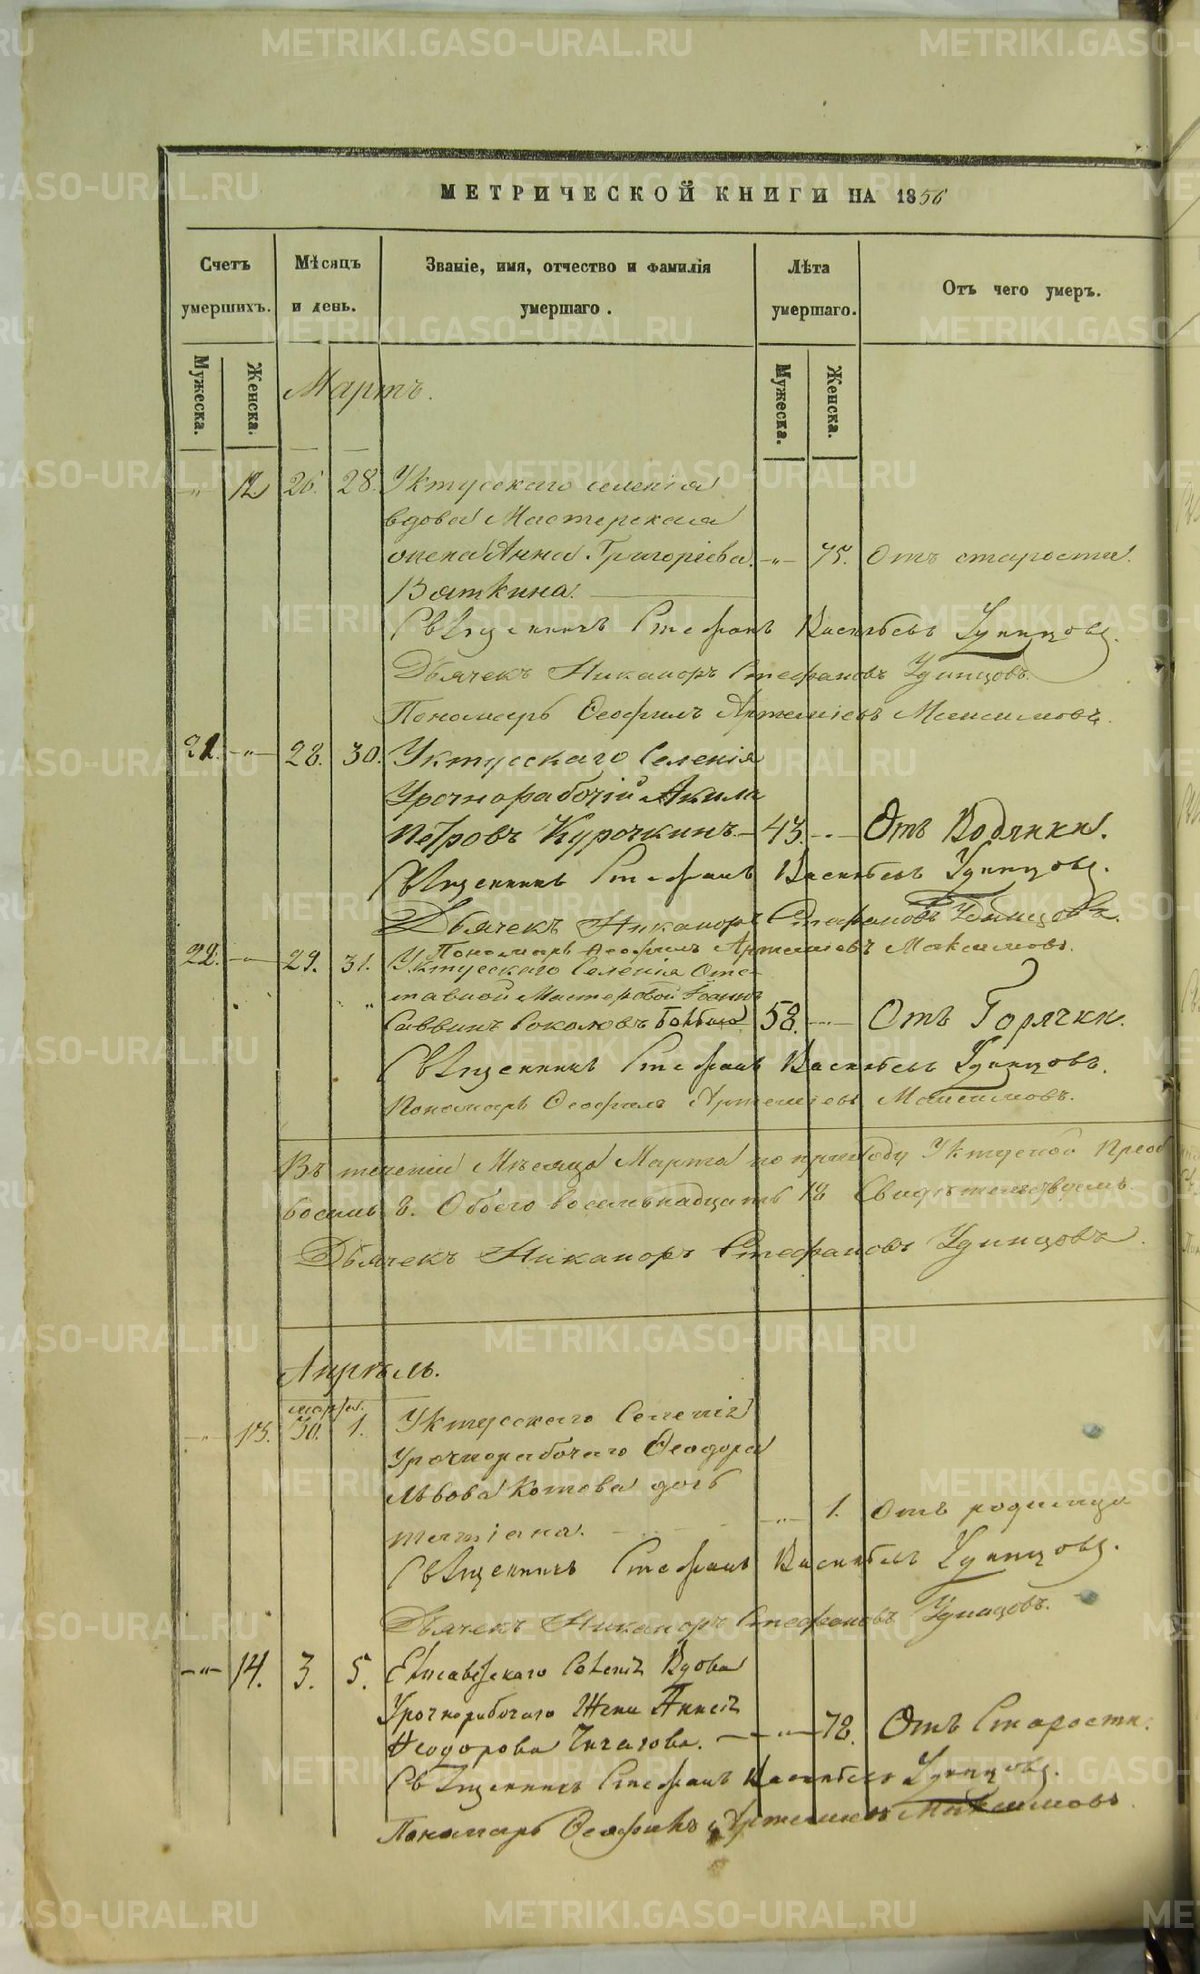 МЕТРИЧЕСКОЙ КНИГИ НА 1856
Счетъ умершихъ.
Мѣсяцъ и день.
Званіе, имя, отчество и фамилія умершаго.
Лѣта умершаго.
Отъ чего умеръ.
Мужеска.
Женска.
Мужеска.
Женска.
Мартъ.
„ 12 26. 28. Уктусскаго селенія
вдова Мастерская
жена Анна Григоріева -„- 75. Отъ старости.
Вяткина.
Священникъ Стефанъ Васильевъ Удинцовъ.
Дьячекъ Никаноръ Стефановъ Удинцовъ.
Пономарь Ѳеофилъ Артеміевъ Максимовъ.
21. -„- 28. 30. Уктусскаго Селенія
Урочнорабочій Акила
Петровъ Курочкинъ. 43. -„- Отъ Водянки.
Священникъ Стефанъ Васильевъ Удинцовъ.
Дьячекъ Никаноръ Стефановъ Удинцовъ.
Пономарь Ѳеофилъ Артеміевъ Максимовъ.
22. -„- 29. 31. Уктусскаго Селенія Отс-
тавной Мастеровой Іоаннъ
Саввинъ Соколовъ 58. -„- Отъ Горячки.
Священникъ Стефанъ Васильевъ Удинцовъ.
Пономарь Ѳеофилъ Артеміевъ Максимовъ.
Въ теченіи Мѣсяца Марта по приходу Уктуской Преоб
восемь 8. Обоего восемьнадцать 18 Свидѣтельствуемъ.
Дьячекъ Никаноръ Стефановъ Удинцовъ.
Апрѣль.
марта
-„- 13. 30. 1. Уктусскаго Селенія
Урочнорабочаго Ѳеодора
Львова Котова дочь
Татіана. -„- 1. Отъ родимца
Священникъ Стефанъ Васильевъ Удинцовъ.
Дьячекъ Никаноръ Стефановъ Удинцовъ.
-„- 14. 3. 5. Елисаветскаго Селенія Вдова
Урочнорабочаго Жена
Ѳеодорова -„- 72. Отъ Старости.
Священникъ Стефанъ Васильевъ Удинцовъ.
Пономарь Ѳеофилъ Артеміевъ Максимовъ.
METRIKI.GASO-URAL.RU